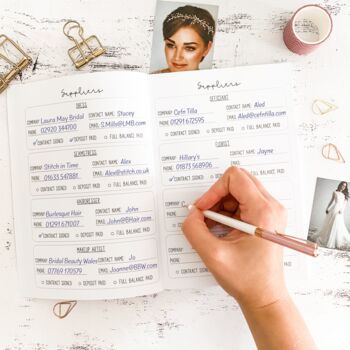 Suppliers
DRESS
COMPANY Laura May Bridal
PHONE 02920 344700 CONTACT NAME Stacey
EMAIL S.Mills@LMB.com
CONTRACT SIGNED DEPOSIT PAID FULL BALANCE PAID
SEAMSTRESS
COMPANY Stitch in Time
PHONE 01633 547881 CONTACT NAME Alex
EMAIL Alex@Stitch.co.uk
CONTRACT SIGNED DEPOSIT PAID FULL BALANCE PAID
HAIRDRESSER
COMPANY Burlesque Hair
PHONE 01291 671007 CONTACT NAME John
EMAIL John@BHair.com
CONTRACT SIGNED DEPOSIT PAID FULL BALANCE PAID
MAKEUP ARTIST
COMPANY Bridal Beauty Wales
PHONE 07769 170579 CONTACT NAME Jo
EMAIL Joanne@BBW.com
CONTRACT SIGNED DEPOSIT PAID FULL BALANCE PAID
Suppliers
OFFICIANT
COMPANY Cefn Tilla
PHONE 01291 672595 CONTACT NAME Aled
EMAIL Aled@Cefntilla.com
CONTRACT SIGNED DEPOSIT PAID FULL BALANCE PAID
FLORIST
COMPANY Hillary's
PHONE 01873 568906 CONTACT NAME Jayne
EMAIL
CONTRACT SIGNED
COMPANY
PHONE
CONTRACT